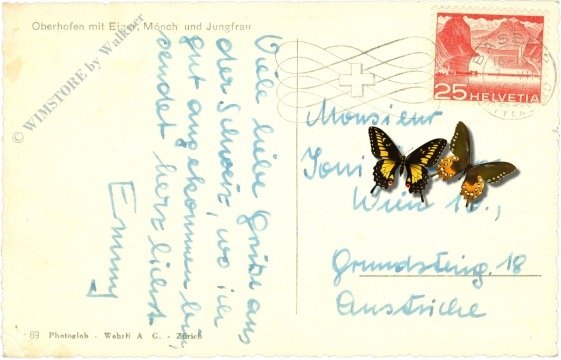 Oberhofen mit Eiger, Mönch und Jungfrau
© WIMSTORE by Walkner
Viele liebe Grüße aus
der Schweiz, wo ich
gut angekommen bin
sendet herzlichst
Emmy
25 HELVETIA
Monsieur
Toni
Wien 12.,
Grundsteing. 18
Autriche
69 Photoglob - Wehrli A. G. - Zürich